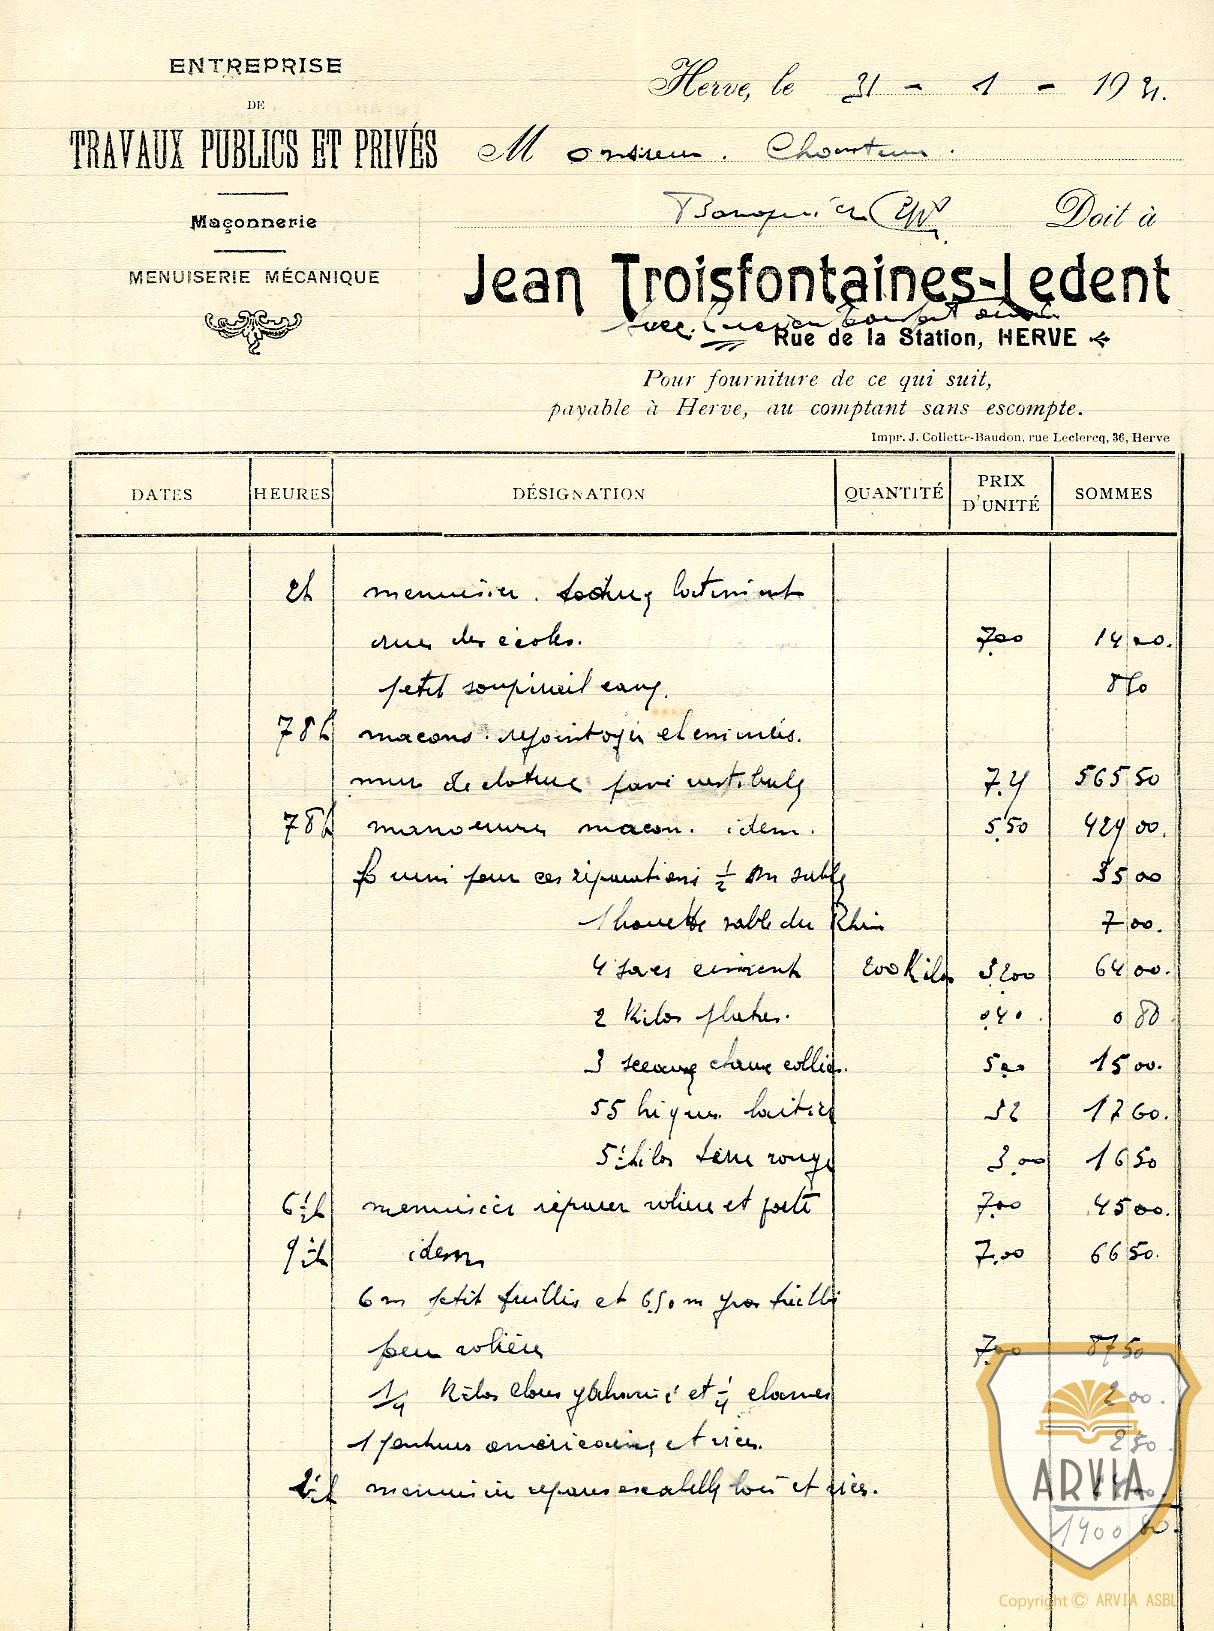 ENTREPRISE
DE
TRAVAUX PUBLICS ET PRIVÉS
Maçonnerie
MENUISERIE MÉCANIQUE
Herve, le 31 - 1 - 1931.
Monsieur.
Banquier Doit à
Jean Troisfontaines-Ledent
Rue de la Station, HERVE
Pour fourniture de ce qui suit,
payable à Herve, au comptant sans escompte.
Impr. J. Collette-Baudon, rue Leclercq, 36, Herve
DATES HEURES DÉSIGNATION QUANTITÉ PRIX D'UNITÉ SOMMES
2h menuisier.
rue des écoles. 7.00 14 00.
petit soupirail 8 50
78h macons. rejointoyer cheminées.
mur de cloture pavé vestibule 7.25 565 50
78h manoeuvre macon. idem. 5.50 429 00.
Fourni pour ces réparations ½ m sable 35 00
1 houette sable du Rhin 7 00.
4 sacs ciment 200 Kilos 32.00 64 00.
2 Kilos platre. 0.40. 0 80
3 sceaux chaux 5.00 15 00.
55 briques 32 17 60.
5½ kilos terre rouge 3.00 16 50
6½h menuisier réparer volière et porte 7.00 45 00.
9½h idem 7.00 66 50.
6m petit treillis et 6.50m gros treillis
pour volière 7.00 87 50
¼ Kilos clous galvanisé et ¼ 2 00.
1 américaine et vis. 2 50.
2½h menuisier et vis.
1400 60.
ARVIA
Copyright © ARVIA ASBL